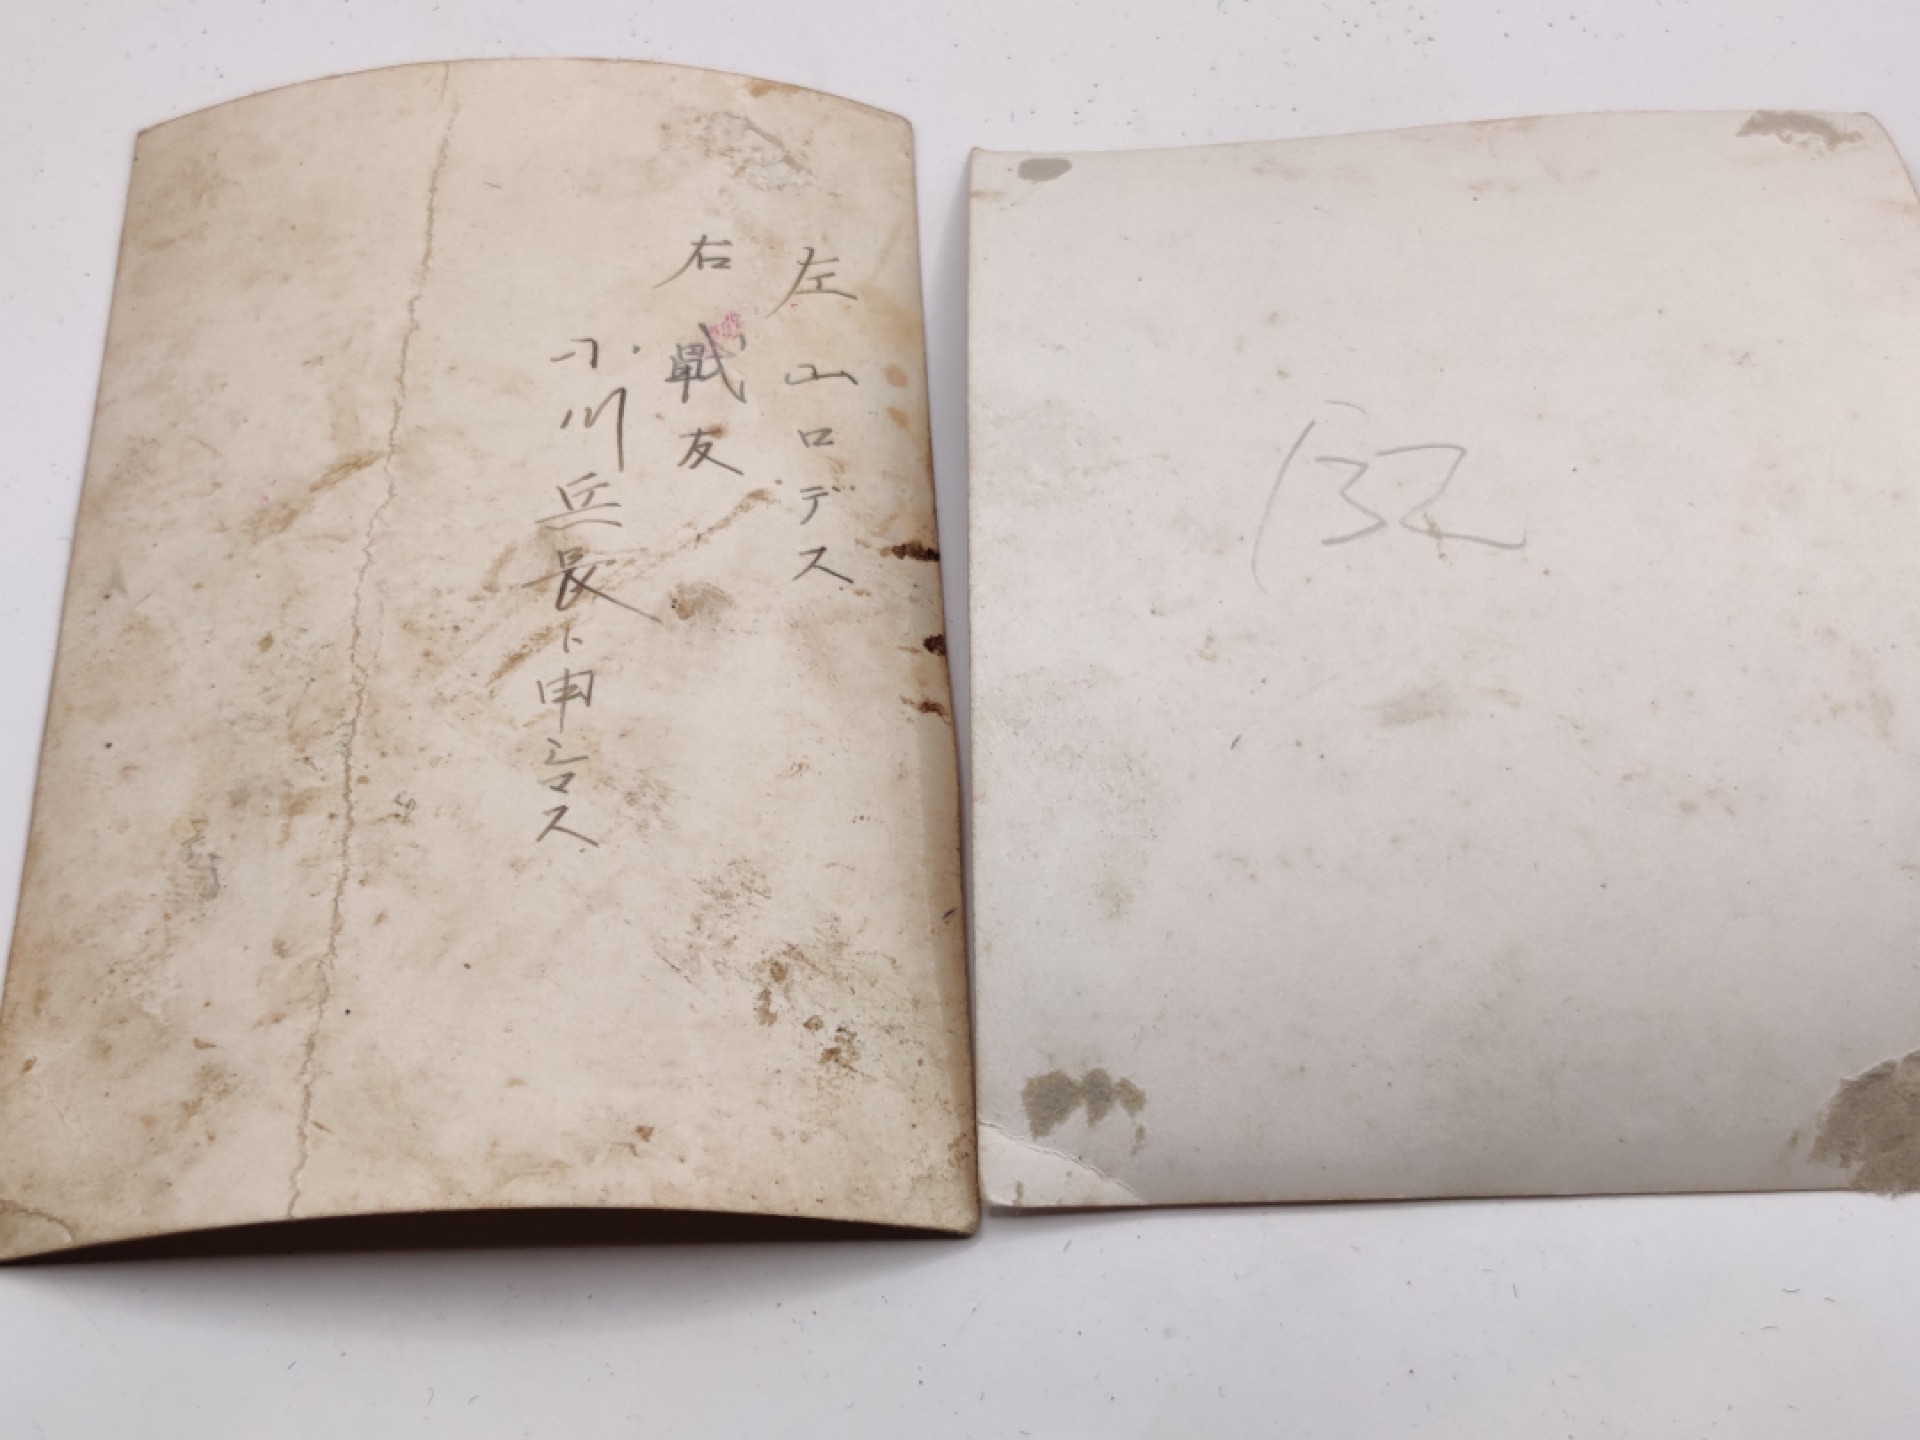 左 山口デス
右 戰友
小川兵長ト申シマス